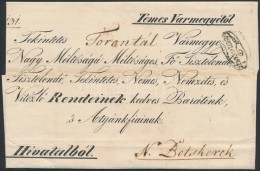 Temes Vármegyétöl
Tekéntetes Torontál Vármegye
Nagy Méltóságú Méltóságos Fö-Tisztelendö
Tisztelendö, Tekéntetes, Nemes, Nemzetes, és
Vitézlö Rendeinek kedves Barátink,
s Atyánkfiainak
Hivatalból.
N. Betskerek